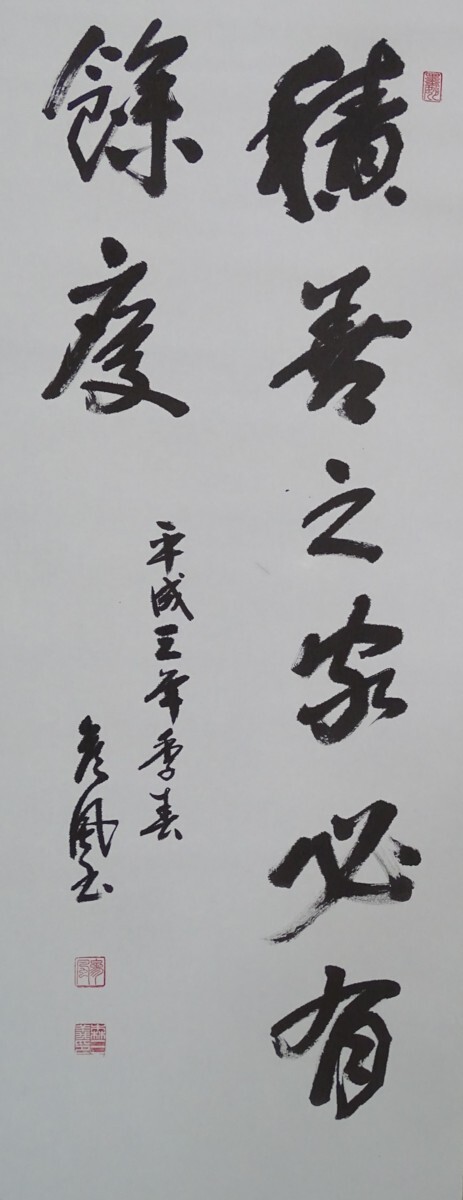 積善之家必有
餘慶
平成三年季春
彦風書